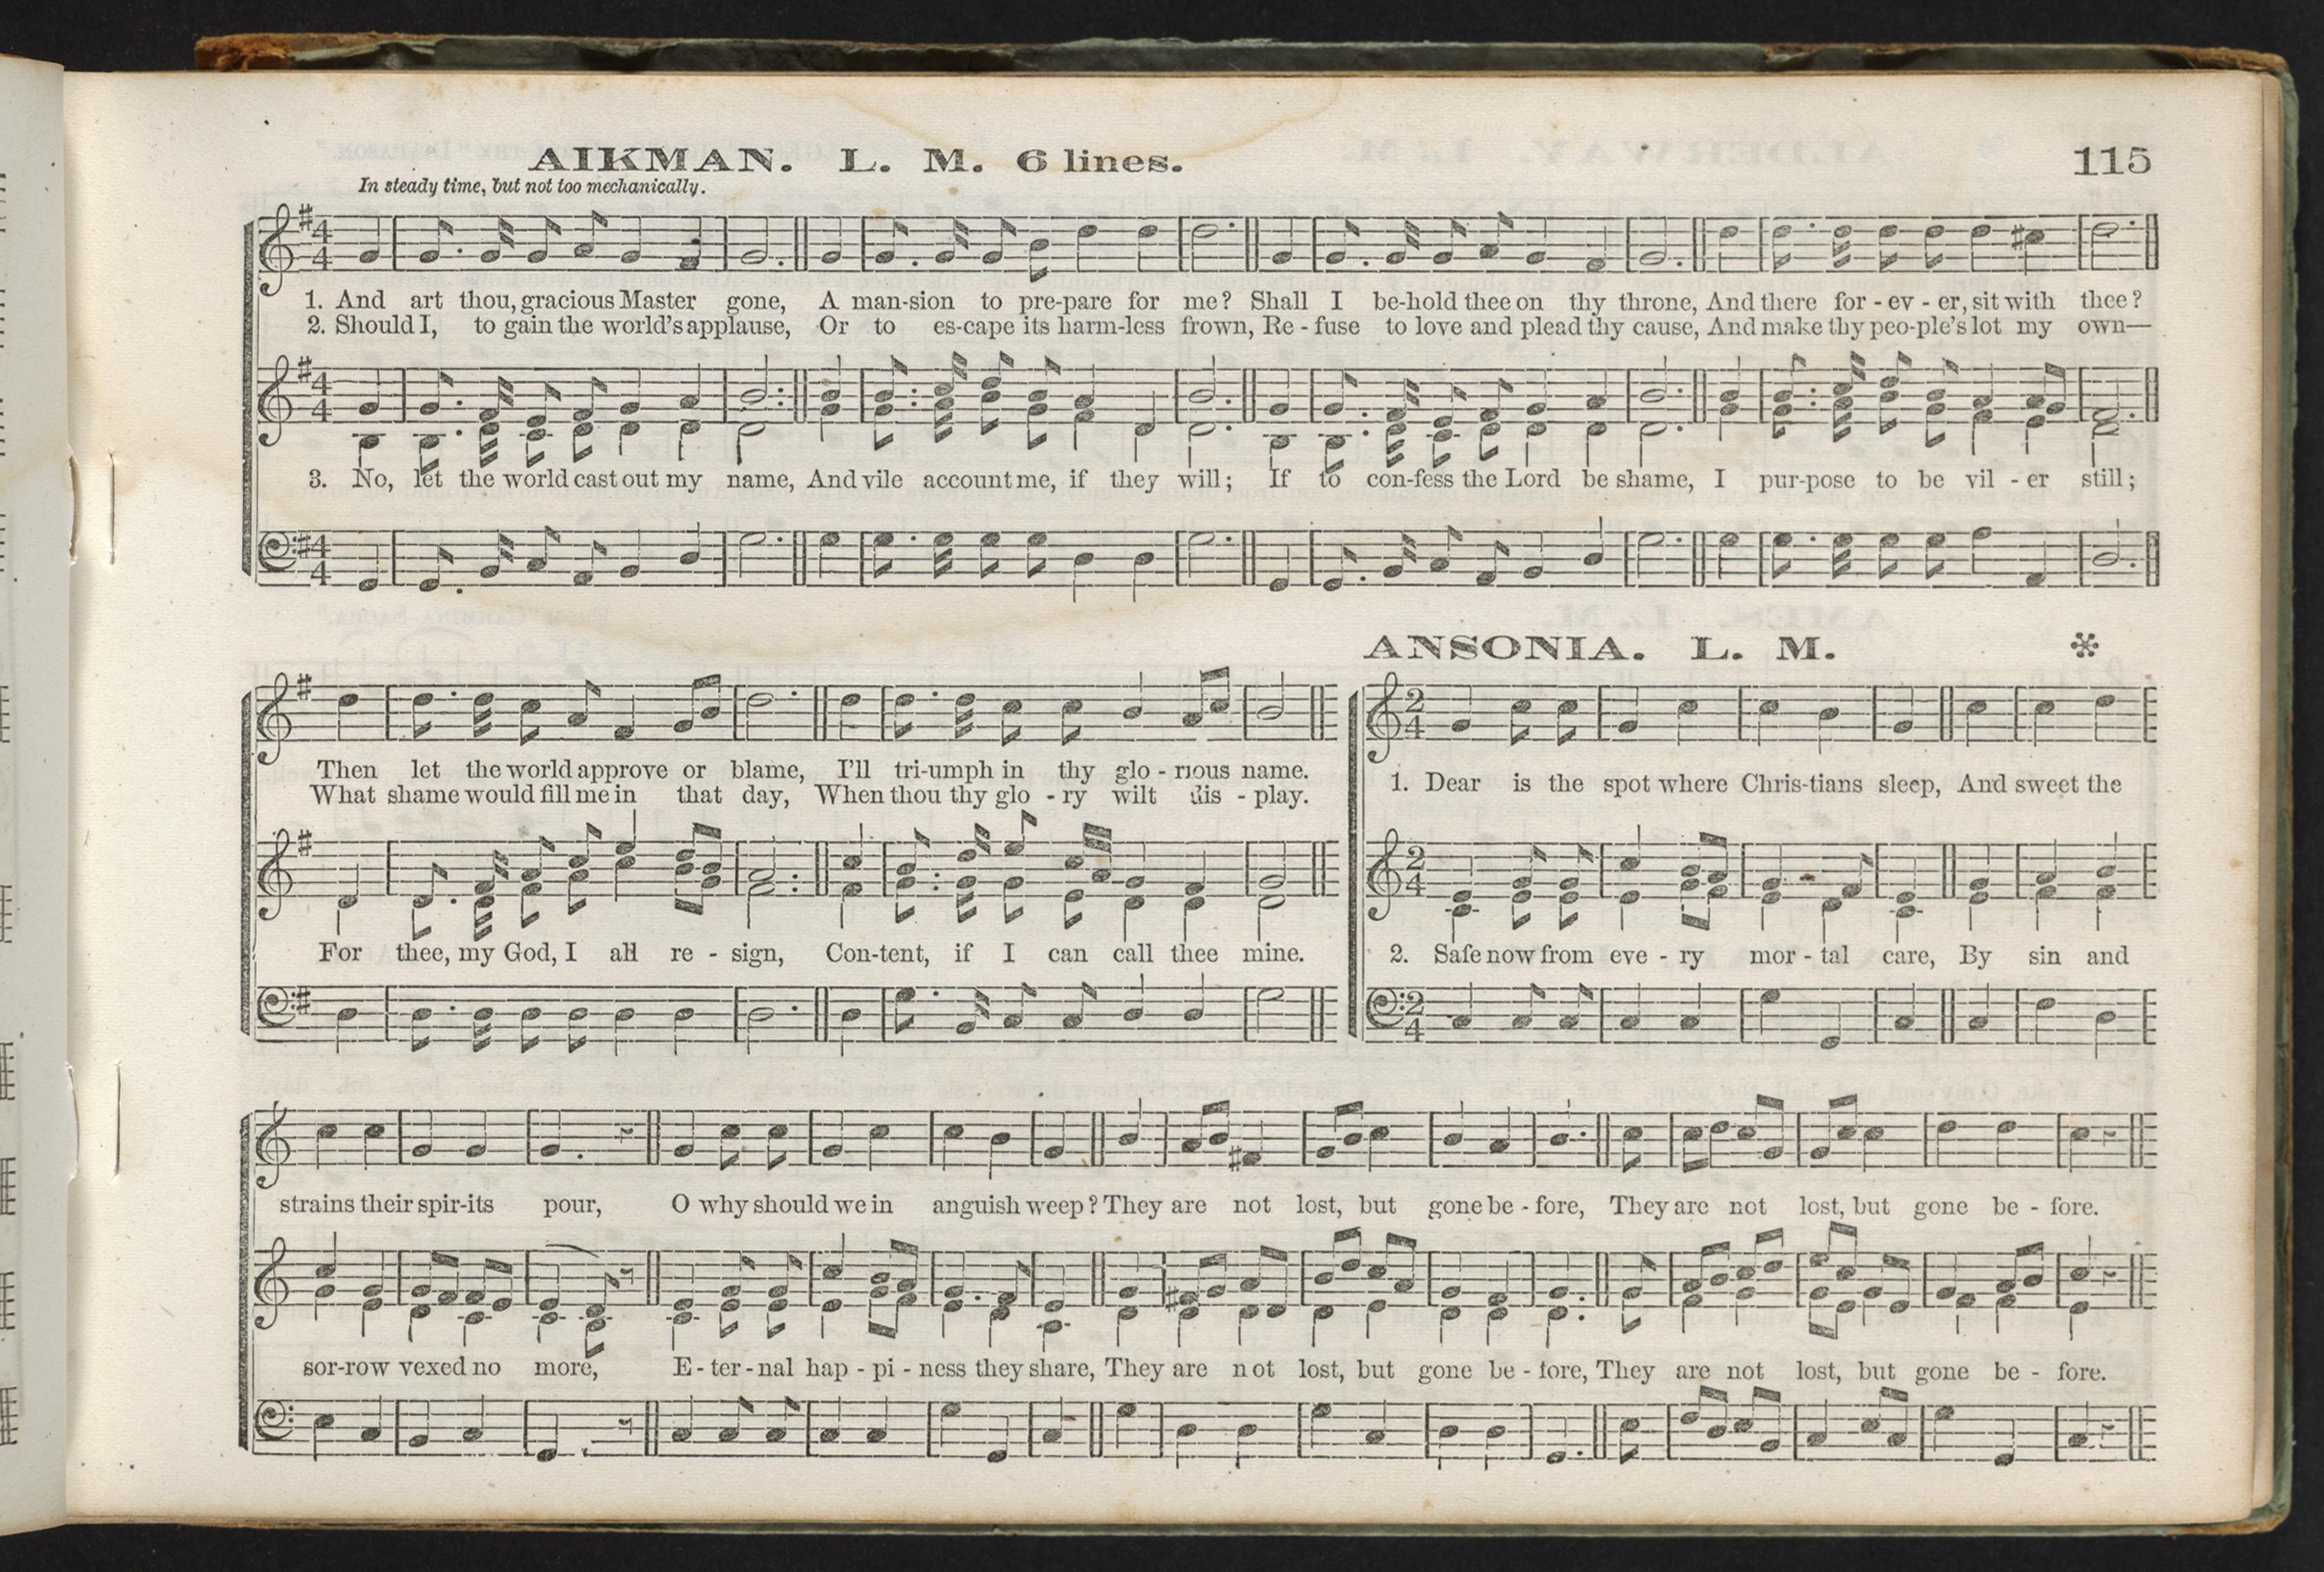 AIKMAN. L. M. 6 lines.
115
In steady time, but not too mechanically.
1. And art thou, gracious Master gone, A man-sion to pre-pare for me? Shall I be-hold thee on thy throne, And there for - ev - er, sit with thee?
2. Should I, to gain the world's applause, Or to es-cape its harm-less frown, Re - fuse to love and plead thy cause, And make thy peo-ple's lot my own—
3. No, let the world cast out my name, And vile account me, if they will; If to con-fess the Lord be shame, I pur-pose to be vil - er still;
ANSONIA. L. M. *
Then let the world approve or blame, I'll tri-umph in thy glo - rious name.
What shame would fill me in that day, When thou thy glo - ry wilt dis - play.
For thee, my God, I all re - sign, Con-tent, if I can call thee mine.
1. Dear is the spot where Chris-tians sleep, And sweet the
2. Safe now from eve - ry mor - tal care, By sin and
strains their spir-its pour, O why should we in anguish weep? They are not lost, but gone be - fore, They are not lost, but gone be - fore.
sor-row vexed no more, E - ter - nal hap - pi - ness they share, They are not lost, but gone be - fore, They are not lost, but gone be - fore.